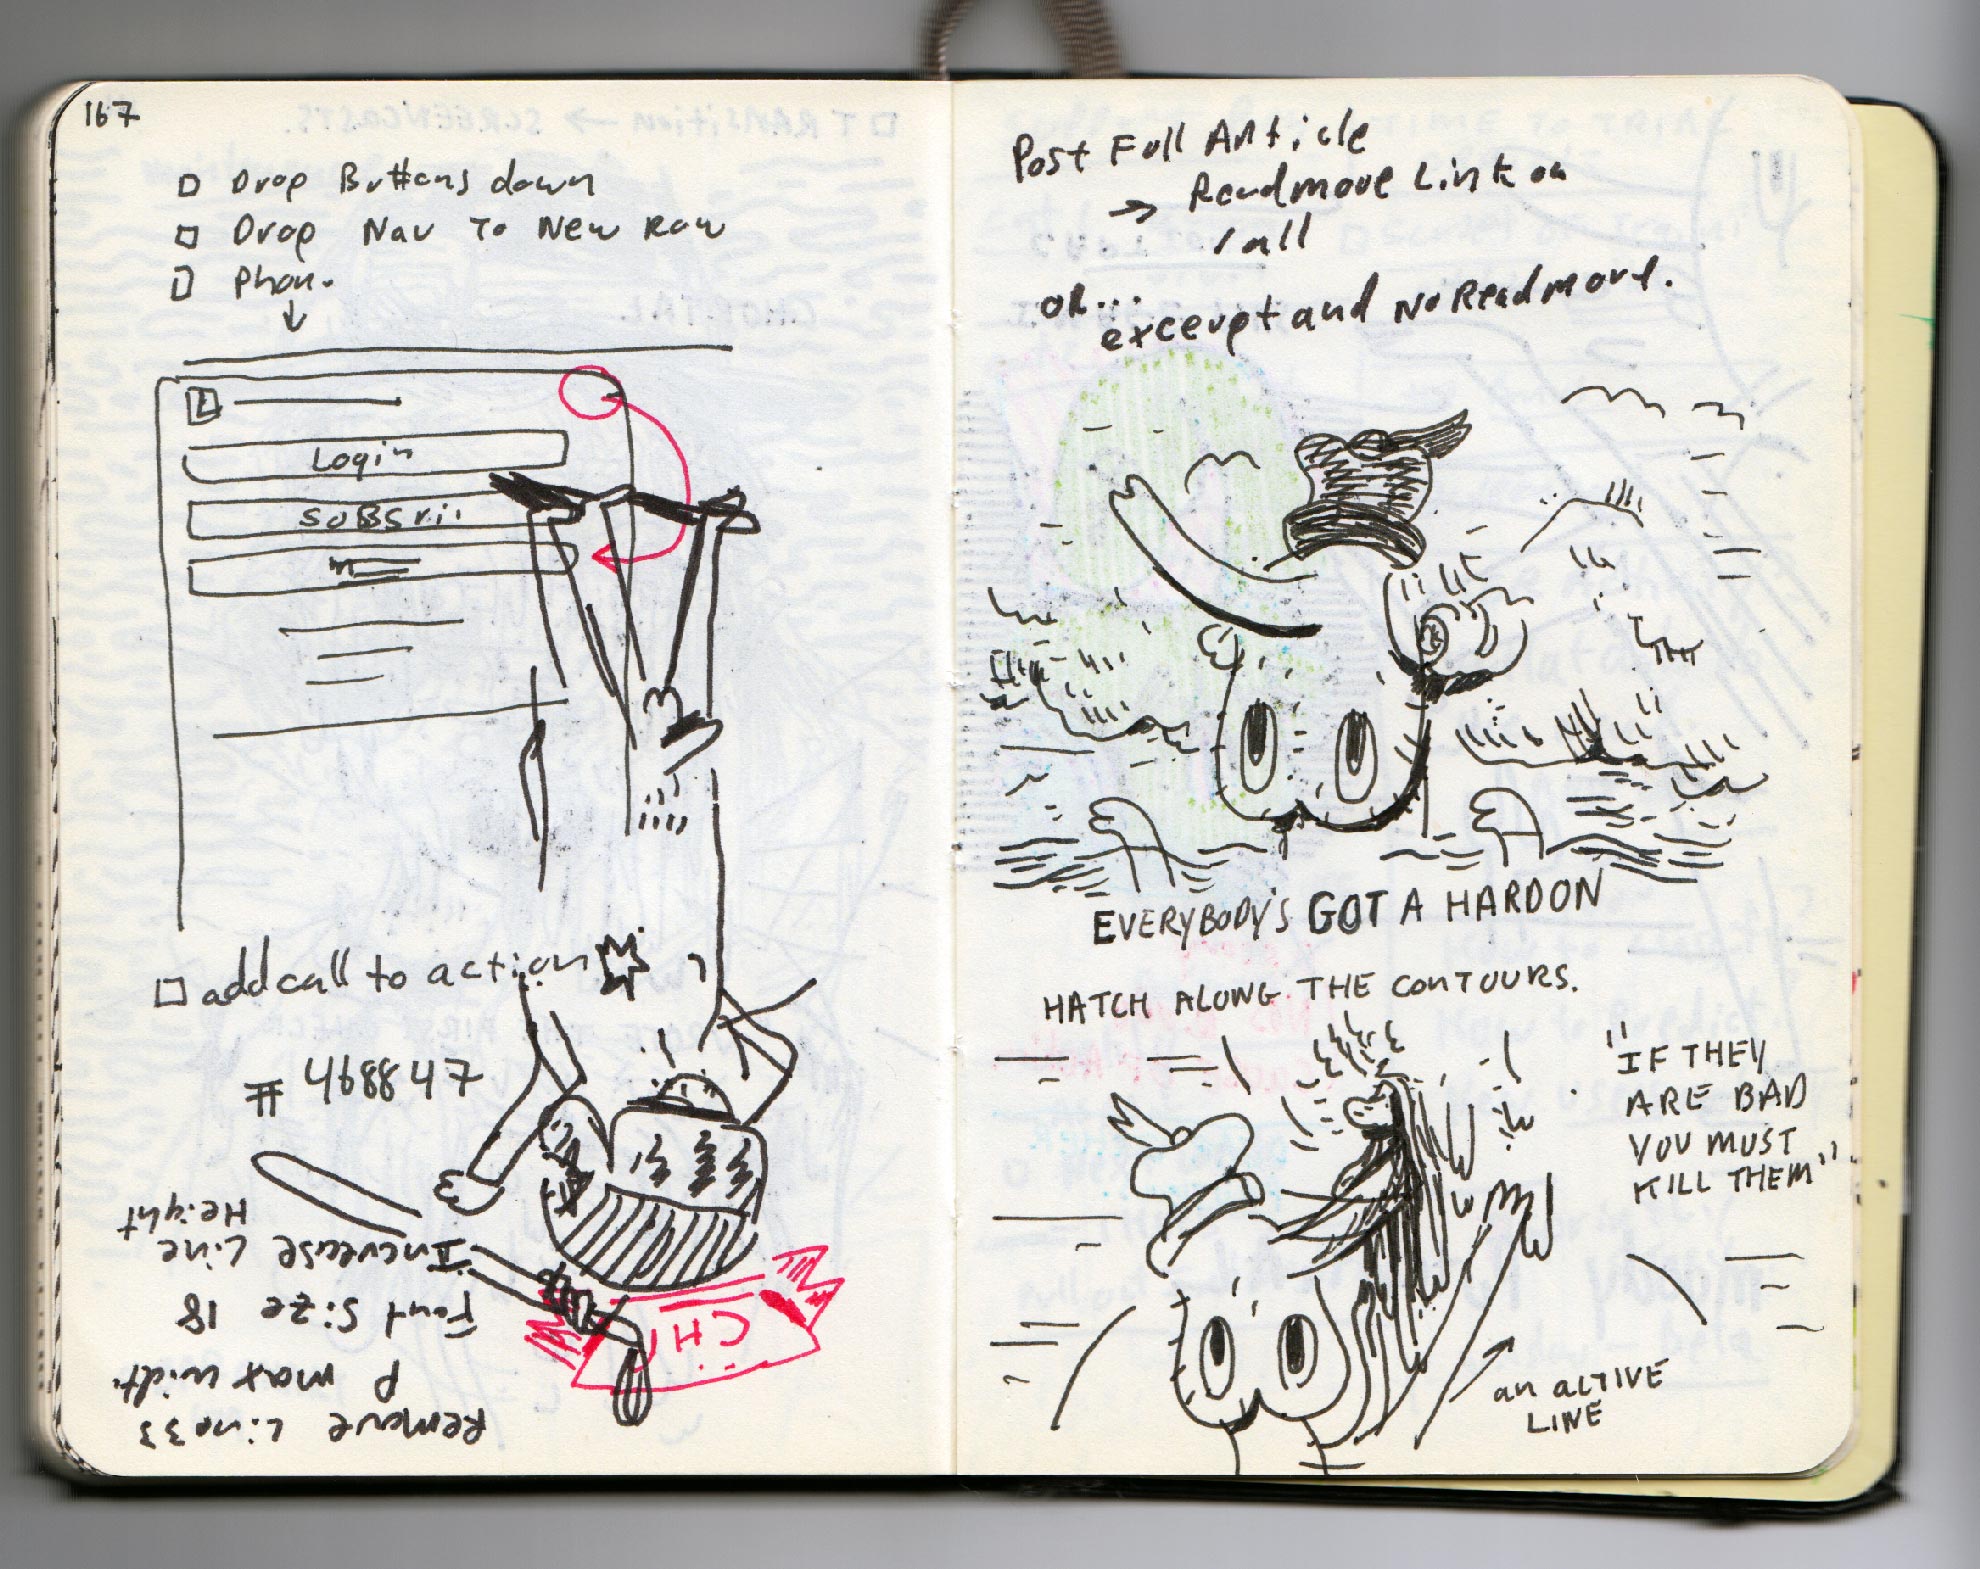 167
Drop Buttons down
Drop Nav To New Row
Phon.
Login
SUBSCri..
add call to action
# 468847
Remove Line 33
P max widt
Font Size 18
Increase Line
Height
CH
Post Full Article
→ Readmore Link on
or...
excerpt and No Readmore.
EVERYBODY'S GOT A HARDON
HATCH ALONG THE CONTOURS.
"IF THEY
ARE BAD
YOU MUST
KILL THEM"
an ACTIVE
LINE
TRANSition → SCREENCASTS.